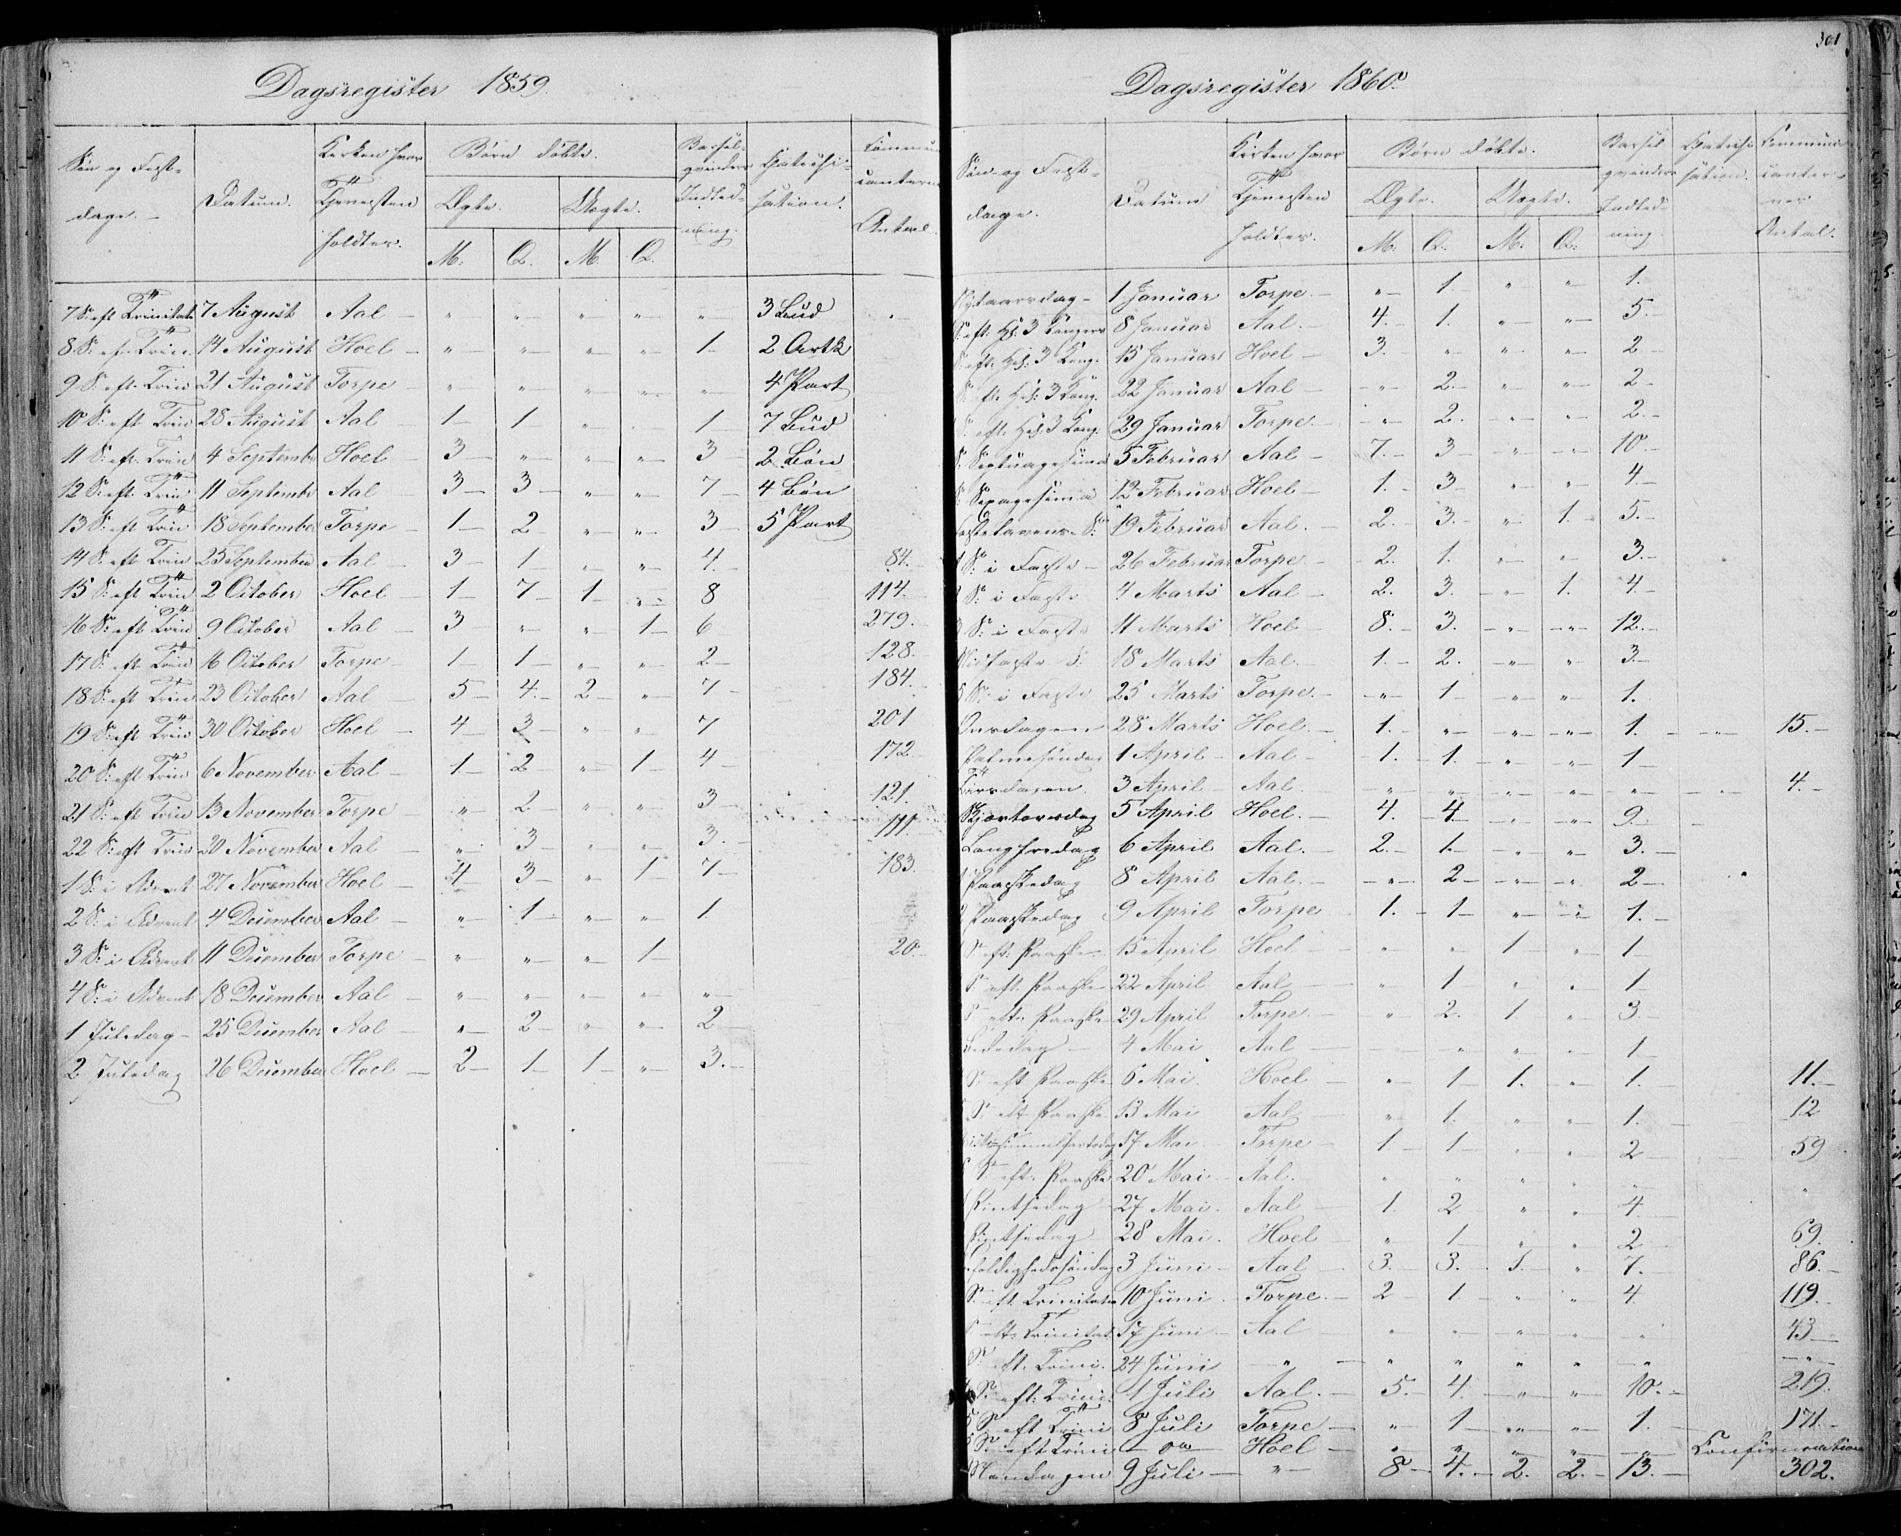 301
Dagsregister 1859.
Søn og Fest-
dage. —
Datum.
Kirken hvor
Tjenesten
holdtes.
Børn døbte.
Ægte.
Uægte.
M. Q. M. Q.
Barsel-
qvinders
Indled-
ning.
Catechi-
sation.
Commu-
canternes
Antal.
7 S: eft Trinitat 7 August Aal — " " " " " 3 Bud "
8 S: eft Trin 14 August Hoel — " " " " 1 2 Artk
9 S: eft. Trin 21 August Torpe — " " " " " 4 Part
10 S: eft Trin 28 August Aal — 1 1 " " 1 7 Bud
11 S: eft. Trin 4 Septembr Hoel — 3 " " " 3 2 Bøn
12 S: eft. Trin 11 Septembr Aal — 3 3 " " 7 4 Bøn
13 S: eft Trin 18 September Torpe — 1 2 " " 3 5 Part
14 S: eft Trin 25 September Aal — 3 1 " " 4 84.
15 S: eft Trin 2 October Hoel — 1 7 1 " 8 114.
16 S: eft Trin 9 October Aal — 3 " " 1 6 279.
17 S: eft Trin 16 October Torpe — 1 1 " " 2 128.
18 S: eft Trin 23 October Aal — 5 4 2 " 7 184.
19 S: eft Trin 30 October Hoel — 4 3 " " 7 201
20 S: eft Trin 6 November Aal — 1 2 " 1 4 172
21 S: eft Trin 13 November Torpe — " 2 " " 3 121.
22 S: eft Trin 20 November Aal — " 3 " " 3. 111.
1 S: i Advent 27 November Hoel — 4 3 " 1 7 183.
2 S: i Advent 4 December Aal — " 1 " " 1
3 S: i Advent 11 December Torpe — " " " 1 20.
4 S: i Advent 18 December Aal — " " " " "
1 Juledag — 25 December Aal — " 2 " " 2
2 Juledag 26 December Hoel — 2 1 1 " 3.
Dagsregister 1860.
Søn- og Fest-
dage.
Datum
Kirken hvor
Tjenesten
holdtes.
Børn døbte.
Ægte.
Uægte.
M. Q. M. Q.
Barsel
qvinders
Indled-
ning.
Catechi-
sation.
Communi-
canter-
nes
Antal.
Nytaarsdag — 1 Januar Torpe — " 1 " " 1.
S: eft. Hel: 3 Kongers 8 Januar Aal. — 4. 1. " " 5.
S: eft. Hel: 3 Kong. 15 Januar Hoel — 3. " " " 2
S: eft. Hel: 3 Kong. 22 Januar Aal — " 2. " " 2
S: eft. Hel: 3 Kong. 29 Januar Torpe. — " 2. " " 2.
S: Septuagesima 5 Februar Aal — 7. 3 " " 10.
S: Sexagesima 12 Februar Hoel — 1. 3 " " 4
Fastelavens S: 19 Februar Aal. — 2. 3. " 1. 5.
S: i Faste — 26 Februar Torpe — 2. 1. " " 3.
S: i Faste 4 Marts Aal — 2. 3. " 1. 4.
S: i Faste 11 Marts Hoel 8. 3. " " 12.
Midfaste S. 18 Marts Aal. — 1. 2. " " 3.
5 S: i Faste 25 Marts Torpe. — " 1 " " 1.
Onsdagen 28 Marts Hoel. — 1. " " " 1. " 15.
Palmesøndag 1 April Aal — 1. 1. " " 1
Tirsdagen 3 April Aal — " " " " " " 4.
Skjærtorsdag 5 April Hoel. — 4. 4. " " 9.
Langfredag 6 April Aal. — 2. 1. " " 3.
Paaskedag 8 April Aal. — " 2 " " 2
Paaskedag 9 April Torpe — 1. 1 " " 1.
S: eft. Paaske 15 April Hoel — " " 1 " 1
S: eft. Paaske 22 April Aal — " 1 " " 1
S: eft. Paaske 29 April Torpe. — " 2. 1. " 3.
Bededag — 4 Mai Aal — " " " 1
S: eft Paaske 6 Mai. Hoel — " 1 1. " 1. 11.
S: eft Paaske 13 Mai Aal — " 1. " " 1. 12
Christi Himmelfartsdag 17 Mai Torpe — 1. 1 " " 2 59
S: eft. Paaske 20 Mai — Aal. " " " " " "
Pintsedag 27 Mai. Aal — 1. 2. " " 4.
Pintsedag 28 Mai. Hoel — " 1 " " 2 69.
Trefoldighedssøndag 3 Juni — Aal — 3. 3. 1. " 7. 86.
S: eft Trinitatis 10 Juni — Torpe. — 2 1. " " 4 119.
S: eft. Trinitat. 17 Juni — Aal — " " " " " 43
S: eft. Trini. 24 Juni — " — " " " " " "
S: eft: Trini. 1 Juli Aal. — 5. 4. " " 10. 219.
S: eft Trini 8 Juli Torpe — " 1 " " 1. 171.
S: eft Trini — " — Hoel — " " " " " Confirmation
Mandagen 9 Juli — " — 8 4. 2. 2. 13. 302.